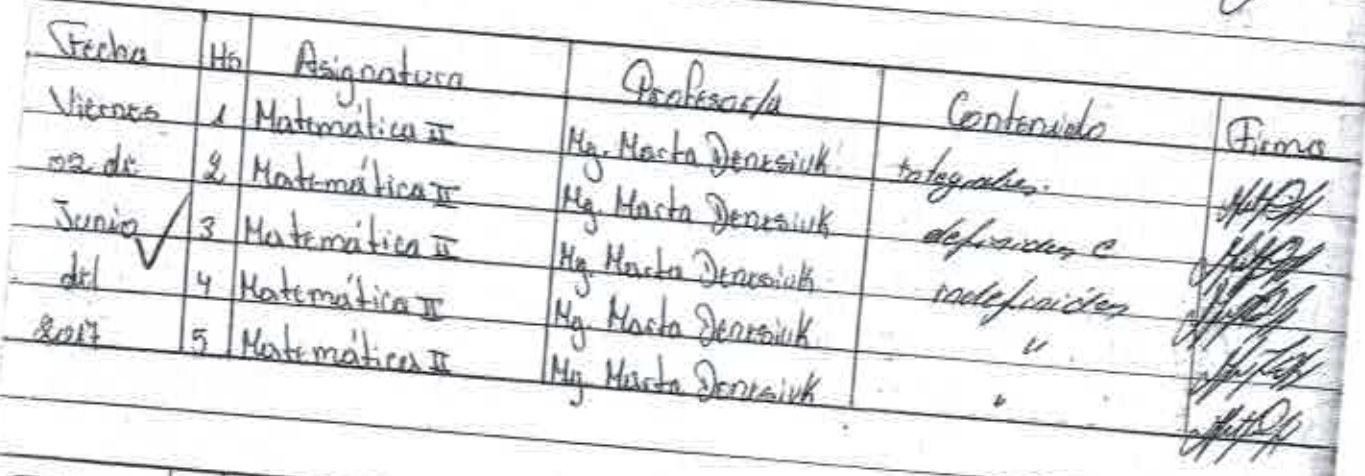 Fecha Hs Asignatura Profesor/a Contenido Firma
Viernes 1 Matemática II Mg. Marta Denesiuk Integrales
02 de 2 Matemática II Mg. Marta Denesiuk definidas e
Junio 3 Matemática II Mg. Marta Denesiuk indefinidas
del 4 Matemática II Mg. Marta Denesiuk "
2017 5 Matemática II Mg. Marta Denesiuk "